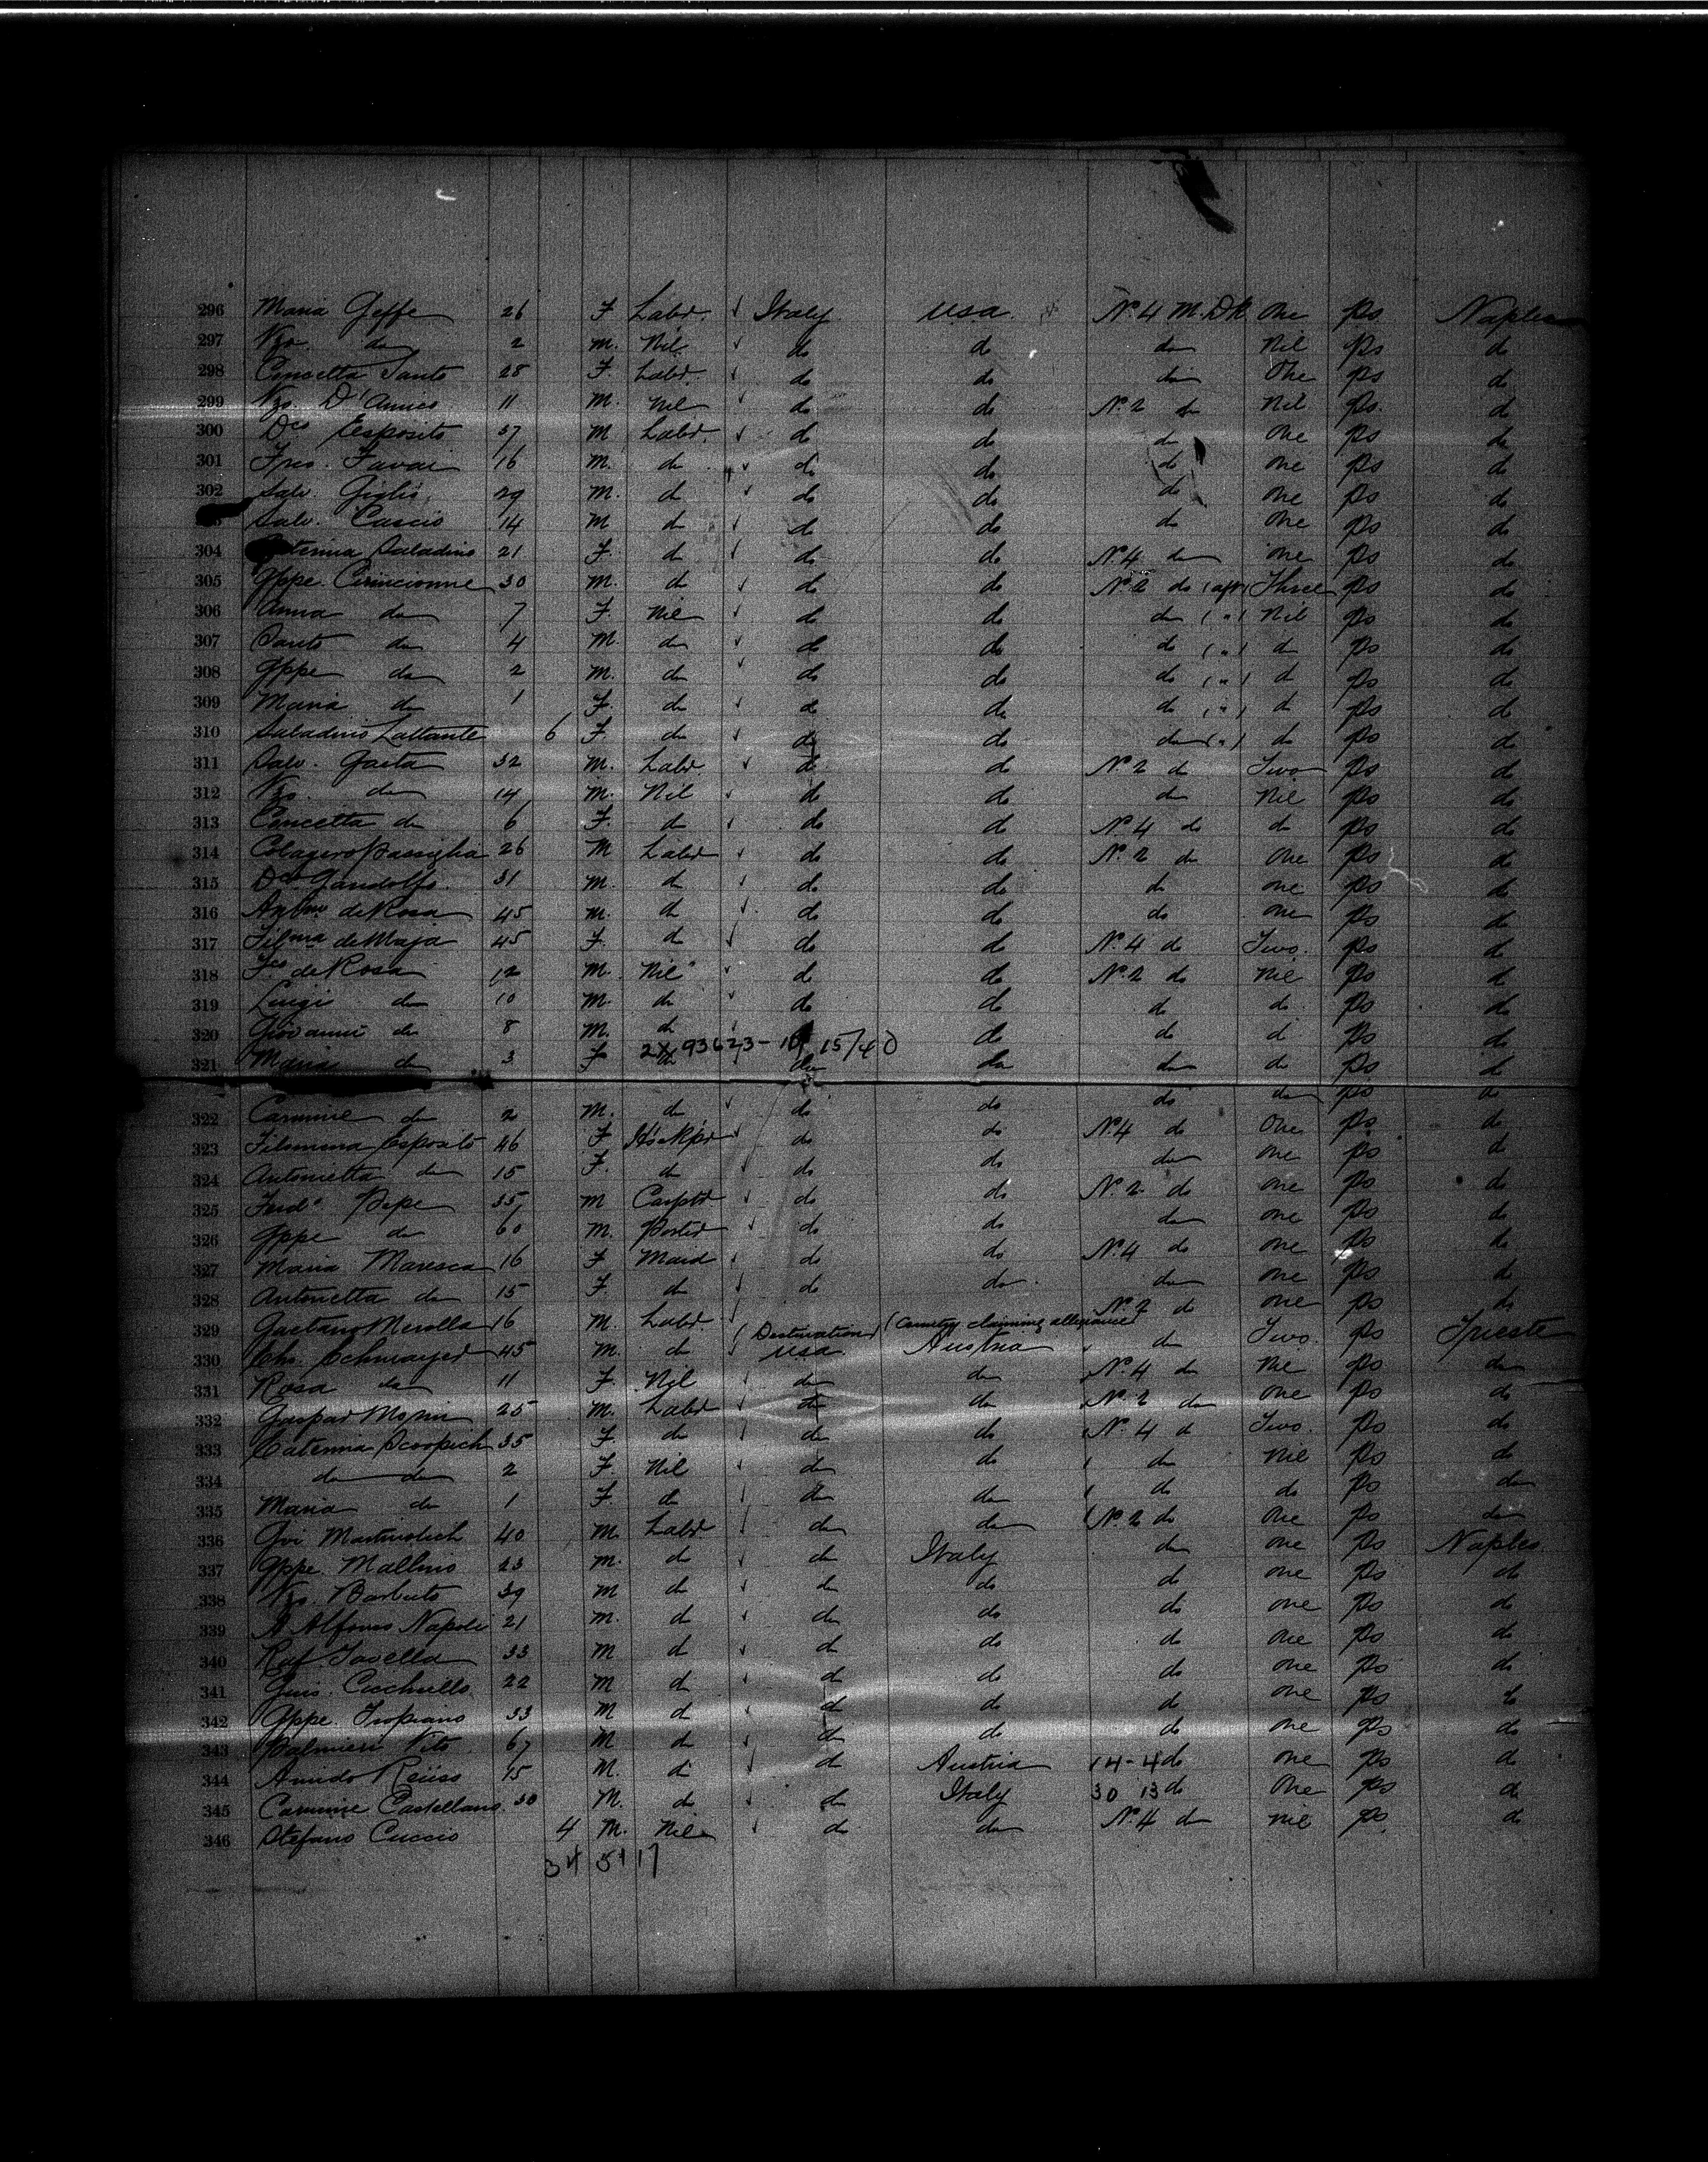 296 Maria Geffe 26 F Labr. ✓ Italy U.S.A. No. 4 M. DK One ps Naples
297 Nzo. do 2 m. Nil ✓ do do do Nil ps do
298 Concetta Santo 28 F. Labr. ✓ do do do One ps do
299 Nzo. D'Amico 11 m. Nil ✓ do do No. 2 do Nil ps. do
300 Dco Esposito 37 m Labr. ✓ do do do One ps do
301 16 m. do ✓ do do do One ps do
302 Salv. Giglio 29 m. do ✓ do do do One ps do
Salv. Cascio 14 m do ✓ do do do One ps do
304 Saladino 21 F. do ✓ do do No. 4 do One ps do
305 Gppe. Cirincionne 30 m. do ✓ do do No. 2 do (aft) Three ps do
306 Anna do 7 F. Nil ✓ do do do (") Nil ps do
307 Santo do 4 m do ✓ do do do (") do ps do
308 Gppe do 2 m. do ✓ do do do (") do ps do
309 Maria do 1 F. do ✓ do do do (") do ps do
310 Saladino Lattante 6 F. do do do do (") do ps do
311 Salv. Gaeta 32 m. Labr. ✓ do do No. 2 do Two ps do
312 Nzo. do 14 m. Nil ✓ do do do Nil ps do
313 Concetta do 6 F. do ✓ do do No. 4 do do ps do
314 Calogero Passiglia 26 m Labr ✓ do do No. 2 do One ps do
315 Dco Gandolfo. 31 m. do ✓ do do do One ps do
316 de Rosa 45 m. do ✓ do do do One ps do
317 Filma de Maja 45 F. do ✓ do do No. 4 do Two. ps do
318 Fco de Rosa 12 m. Nil ✓ do do No. 2 do Nil ps do
319 Luigi do 10 m. do ✓ do do do do. ps do
320 Giovanni do 8 m. do do do do do ps do
2X93623- 15/40
321 Maria do 3 F do ✓ do do do do ps do
322 Carmine do 2 m. do ✓ do do do do ps do
323 Filomena Esposito 46 F Hsekpr ✓ do do No. 4 do One ps do
324 Antonietta do 15 F. do ✓ do do do One ps do
325 Ferdo Pepe 35 m Carptr. ✓ do do No. 2 do One ps do
326 Gppe do 60 m. Porter ✓ do do do One ps do
327 Maria Maresca 16 F Maid ✓ do do No. 4 do One ps do
328 Antonetta do 15 F. do ✓ do do do One ps do
329 Gaetano Merolla 16 m. Labr. ✓ No. 2 do One ps do
(Destination) (Country claiming allegiance)
330 Chs. Schmayer 45 m. do ✓ U.S.A. Austria do Two. ps Trieste
331 Rosa do 11 F. Nil ✓ do do No. 4 do Nil ps do
332 Gaspar 25 m. Labr ✓ do do No. 2 do One ps do
333 Caterina Scoopich 35 F. do ✓ do do No. 4 do Two. ps do
334 do do 2 F. Nil ✓ do do do Nil ps do
335 Maria do 1 F. do ✓ do do do do ps do
336 Gvi Martinolich 40 m. Labr ✓ do do No. 2 do One ps do
337 Gppe. Mallino 23 m. do ✓ do Italy do One ps Naples.
338 Nzo. Barbuto 39 m do ✓ do do do One ps do
339 D Alfonso Napoli 21 m. do ✓ do do do One ps do
340 Raf. Tavella 33 m do ✓ do do do One ps do
341 22 m do ✓ do do do One ps do
342 Gppe. Tropiano 33 m do ✓ do do do One ps do
343 Palmieri Vito 67 m do ✓ do do do One ps do
344 15 m. do ✓ do Austria 14-4 do One ps do
345 Carmine Castellano 30 m. do ✓ do Italy 30 13 do One ps do
346 Stefano Cuccio 4 m. Nil ✓ do do No. 4 do Nil ps. do
34 5117